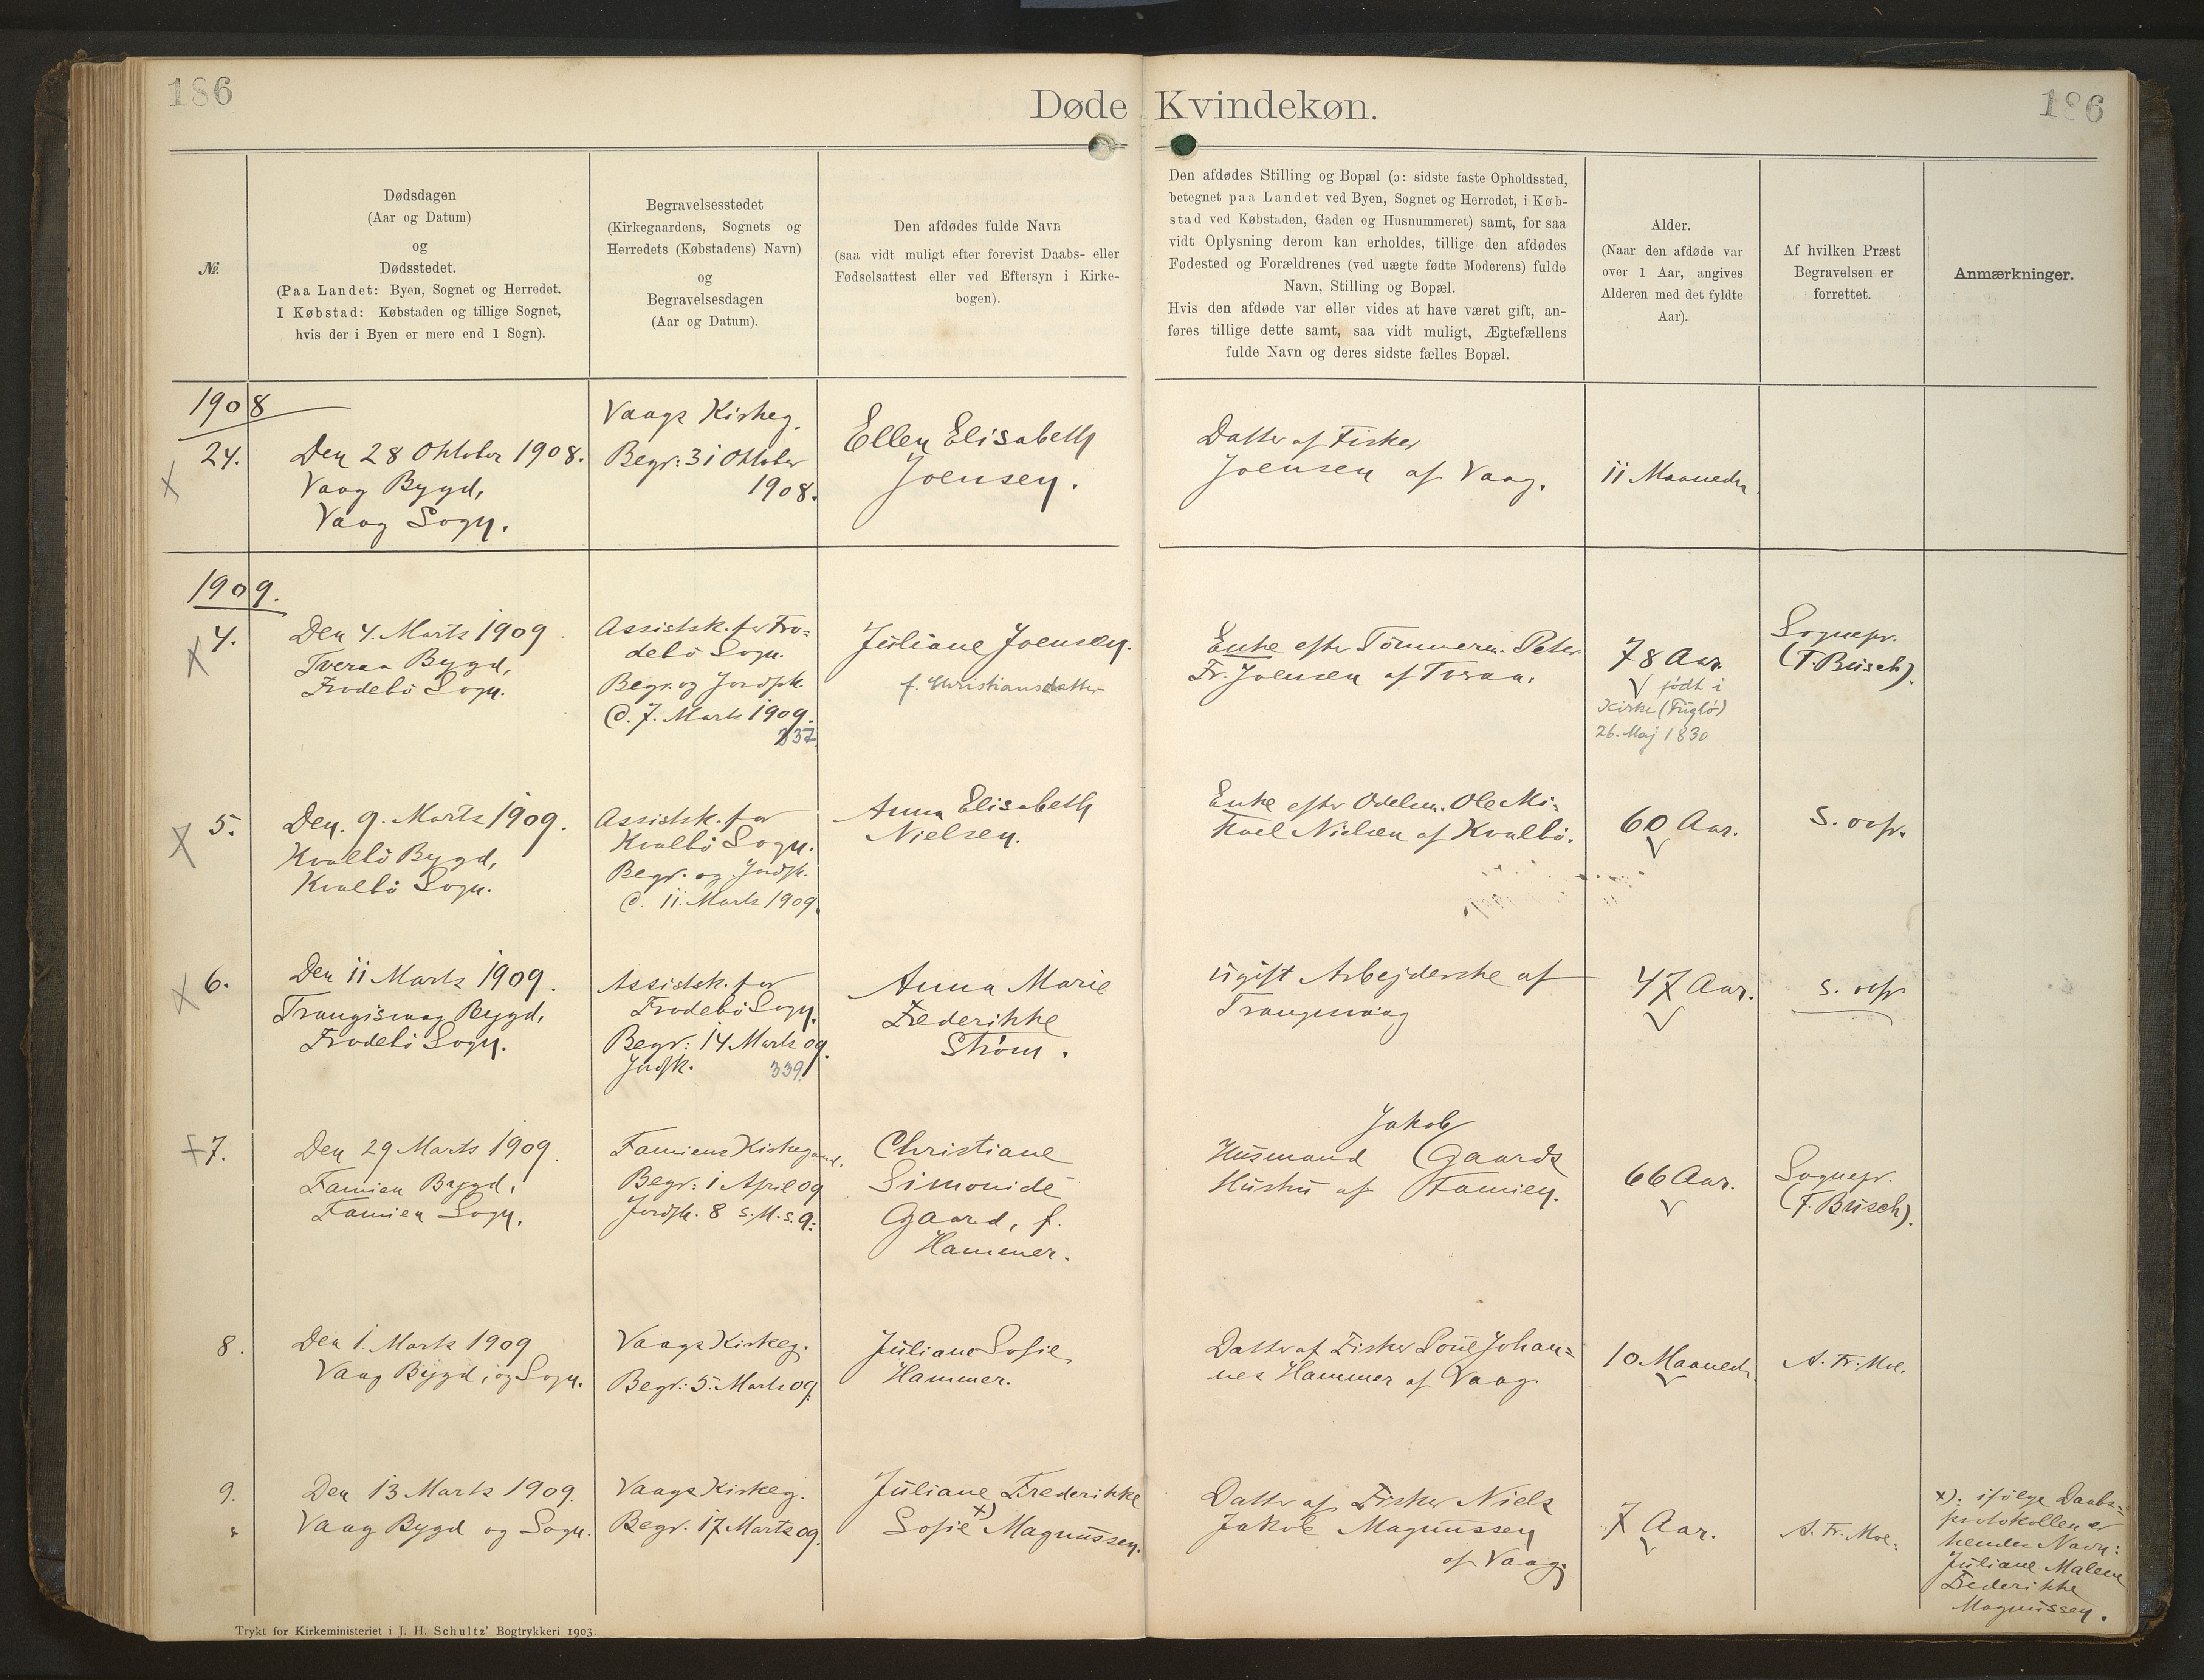 186
186
Døde Kvindekøn.
№
Dødsdagen
(Aar og Datum)
og
Dødsstedet.
(Paa Landet: Byen, Sognet og Herredet.
I Købstad: Købstaden og tillige Sognet,
hvis der i Byen er mere end 1 Sogn).
Begravelsesstedet
(Kirkegaardens, Sognets og
Herredets (Købstadens) Navn)
og
Begravelsesdagen
(Aar og Datum).
Den afdødes fulde Navn
(saa vidt muligt efter forevist Daabs- eller
Fødselsattest eller ved Eftersyn i Kirke-
bogen).
Den afdødes Stilling og Bopæl (ɔ: sidste faste Opholdssted,
betegnet paa Landet ved Byen, Sognet og Herredet, i Køb-
stad ved Købstaden, Gaden og Husnummeret) samt, for saa
vidt Oplysning derom kan erholdes, tillige den afdødes
Fødested og Forældrenes (ved uægte fødte Moderens) fulde
Navn, Stilling og Bopæl.
Hvis den afdøde var eller vides at have været gift, an-
føres tillige dette samt, saa vidt muligt, Ægtefællens
fulde Navn og deres sidste fælles Bopæl.
Alder.
(Naar den afdøde var
over 1 Aar, angives
Alderen med det fyldte
Aar).
Af hvilken Præst
Begravelsen er
forrettet.
Anmærkninger.
1908
24.
Den 28 Oktober 1908.
Vaag Bygd,
Vaag Sogn.
Vaags Kirkeg.
Begr: 31 Oktober
1908.
Ellen Elisabeth
Joensen.
Datter af Fisker
Joensen af Vaag.
11 Maaneder
1909.
4.
Den 4. Marts 1909.
Tveraa Bygd,
Frodebö Sogn.
Assistsk. for Fro=
debö Sogn.
Begr. og Jordfk.
d. 7. Marts 1909.
337
Juliane Joensen.
f. Christiansdatter
Enke efter Tömmerm. Peter
Fr. Joensen af Tveraa.
78 Aar.
født i
Kirke (Fuglö)
26. Maj 1830
Sognepr.
(F. Busch).
5.
Den. 9. Marts 1909.
Kvalbö Bygd,
Kvalbö Sogn.
Assistsk. for
Kvalbö Sogn.
Begr. og Jordfk.
d. 11. Marts 1909.
Anna Elisabeth
Nielsen.
Enke efter Odelsm. Ole Mi=
kael Nielsen af Kvalbö.
60 Aar.
S. ovfr.
6.
Den 11 Marts 1909.
Trangisvaag Bygd,
Frodebö Sogn.
Assistsk. for
Frodebö Sogn.
Begr: 14 Marts 09.
Jordfk.
339
Anna Marie
Frederikke
Ström.
ugift Arbejderske af
Trangisvaag
47 Aar.
s. ovfr
7.
Den 29 Marts 1909.
Famien Bygd,
Famien Sogn.
Famiens Kirkegaard.
Begr: 1 April 09
Jordfk. 8 s. M. s. A:
Christiane
Simonide
Gaard, f.
Hammer.
Jakob
Husmand Gaards
Hustru af Famien.
66 Aar.
Sognepr.
(F. Busch).
8.
Den 1. Marts 1909
Vaag Bygd, og Sogn.
Vaags Kirkeg.
Begr: 5. Marts 09.
Juliane Sofie
Hammer.
Datter af Fisker Poul Johan=
nes Hammer af Vaag.
10 Maaneder
A. Fr. Moe.
9.
Den 13 Marts 1909.
Vaag Bygd og Sogn.
Vaags Kirkeg.
Begr. 17 Marts 09.
Juliane Frederikke
Sofie x) Magnussen.
Datter af Fisker Niels
Jakob Magnussen
af Vaag.
7 Aar.
A. Fr. Moe.
x): ifölge Daabs=
protokollen er
hendes Navn:
Juliane Malene
Frederikke
Magnussen.
Trykt for Kirkeministeriet i J. H. Schultz' Bogtrykkeri 1903.